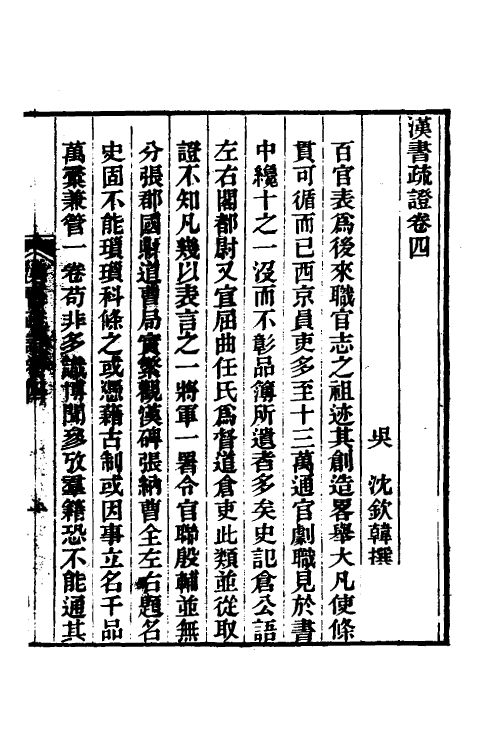 漢書疏證卷四
吳　沈欽韓撰
百官表爲後來職官志之祖迹其創造畧舉大凡使條
貫可循而已西京員吏多至十三萬通官劇職見於書
中纔十之一沒而不彰品簿所遺者多矣史記倉公語
左右閣都尉又宜屈曲任氏爲督道倉吏此類並從取
證不知凡幾以表言之一將軍一署令官聯殷輔並無
分張郡國財道曹局實繁觀漢碑張納曹全左右題名
史固不能瑣瑣科條之或憑藉古制或因事立名千品
萬彙兼管一卷苟非多識博聞參攷羣籍恐不能通其